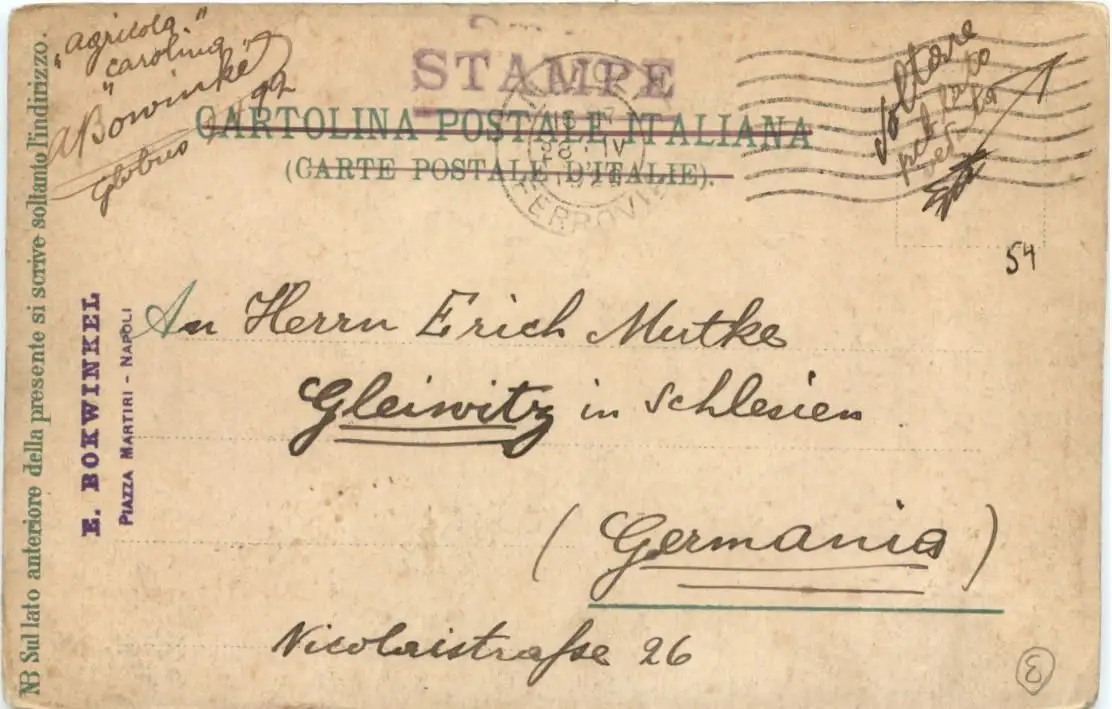 "agricola"
"carolina"
ABowinkel
Globus 92
STAMPE
CARTOLINA POSTALE ITALIANA
(CARTE POSTALE D'ITALIE).
FERROVIA
voltare
per
54
NB Sul lato anteriore della presente si scrive soltanto l'indirizzo.
E. BOKWINKEL
PIAZZA MARTIRI - NAPOLI
An Herrn Erich Mutke
Gleiwitz in Schlesien
(Germania)
Nicolaistraße 26
8